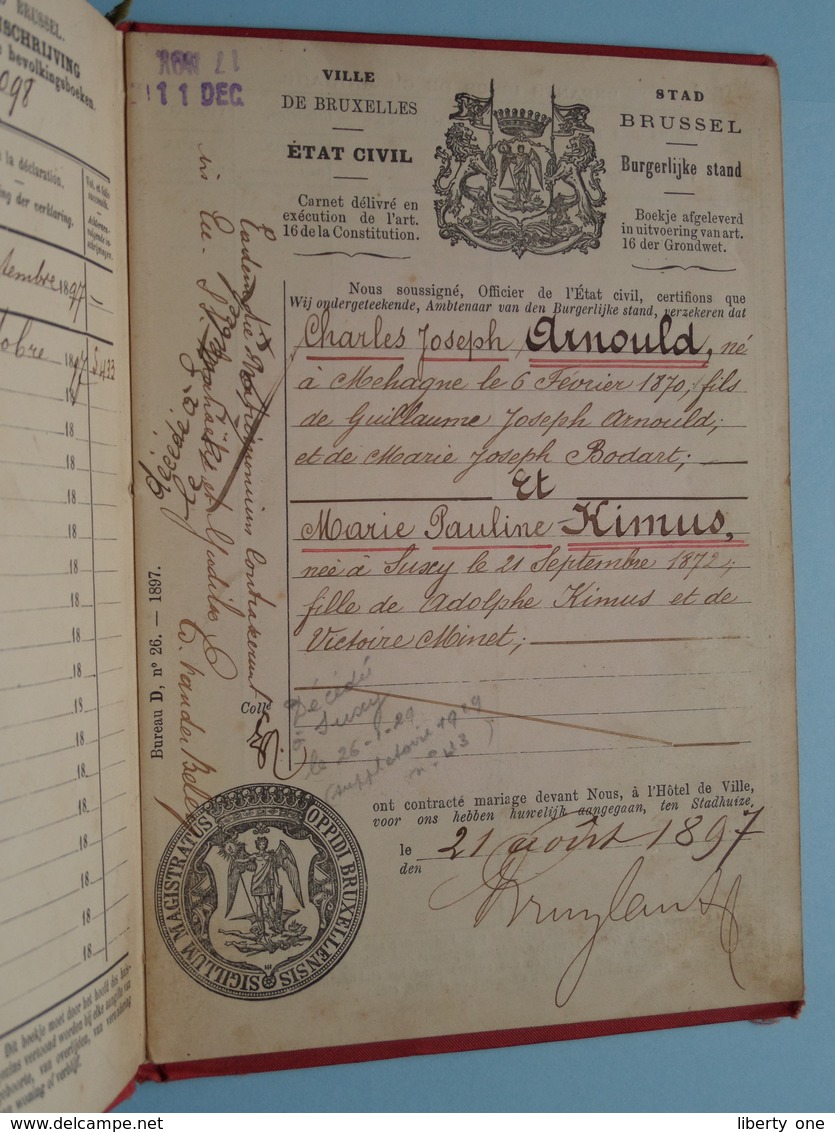 BRUSSEL.
bevolkingsboeken.
098
la déclaration.
ing der verklaring.
tembre 1897
tobre 1897 5433
18
18
18
18
18
18
18
18
18
18
18
18
18
18
Dit boekje moet door het hoofd des huis-
van woning of verblijf.
11 DEC.
VILLE
DE BRUXELLES
ÉTAT CIVIL
Carnet délivré en
exécution de l'art.
16 de la Constitution.
STAD
BRUSSEL
Burgerlijke stand
Boekje afgeleverd
in uitvoering van art.
16 der Grondwet.
Nous soussigné, Officier de l'État civil, certifions que
Wij ondergeteekende, Ambtenaar van den Burgerlijke stand, verzekeren dat
Charles Joseph Arnould, né
à Mehagne le 6 Février 1870, fils
de Guillaume Joseph Arnould,
et de Marie Joseph Bodart;
Et
Marie Pauline Kimus,
née à Suxy le 21 Septembre 1872;
fille de Adolphe Kimus et de
Victoire Minet;
Eadem die Matrimonium Contraxerunt
décédé
Bureau D, n° 26. — 1897.
Collé
Décédé
à Suxy
le 26-1-29
supplétoire 1929
n°
ont contracté mariage devant Nous, à l'Hôtel de Ville,
voor ons hebben huwelijk aangegaan, ten Stadhuize,
le
den
21 août 1897
Bruylant
SIGILLUM MAGISTRATUS OPPIDI BRUXELLENSIS
liberty_one